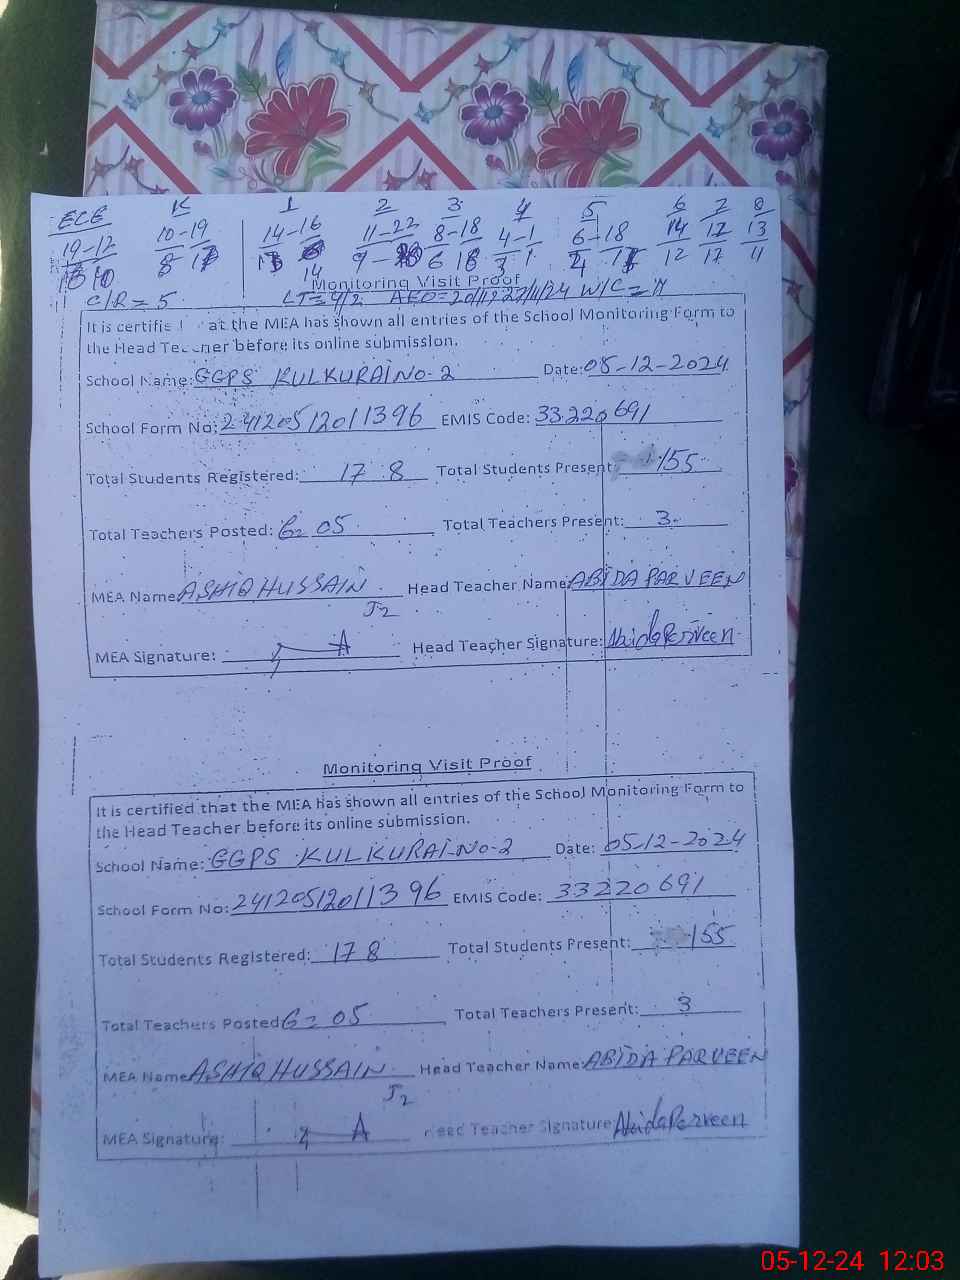 ECE K 1 2 3 4 5 6 7 8
19-12 10-19 14-16 11-22 8-18 4-1 6-18 14 12 13
10 8 13 14 9- 6 18 3 1 4 12 17 11
Monitoring Visit Proof
C/R = 5 W/C =
It is certifie at the MEA has shown all entries of the School Monitoring Form to
the Head Teacher before its online submission.
School Name: GGPS KULKURAI NO-2 Date: 05-12-2024
School Form No: 24120512011396 EMIS Code: 33220691
Total Students Registered: 178 Total Students Present: 155
Total Teachers Posted: G= 05 Total Teachers Present: 3
MEA Name ASHIQ HUSSAIN Head Teacher Name: ABIDA PARVEEN
J2
MEA Signature: A Head Teacher Signature: Abida Perveen
Monitoring Visit Proof
It is certified that the MEA has shown all entries of the School Monitoring Form to
the Head Teacher before its online submission.
School Name: GGPS KULKURAI-NO-2 Date: 05-12-2024
School Form No: 24120512011396 EMIS Code: 33220691
Total Students Registered: 178 Total Students Present: 155
Total Teachers Posted G= 05 Total Teachers Present: 3
MEA Name ASHIQ HUSSAIN Head Teacher Name: ABIDA PARVEEN
J2
MEA Signature: A Head Teacher Signature: Abida Perveen
05-12-24 12:03